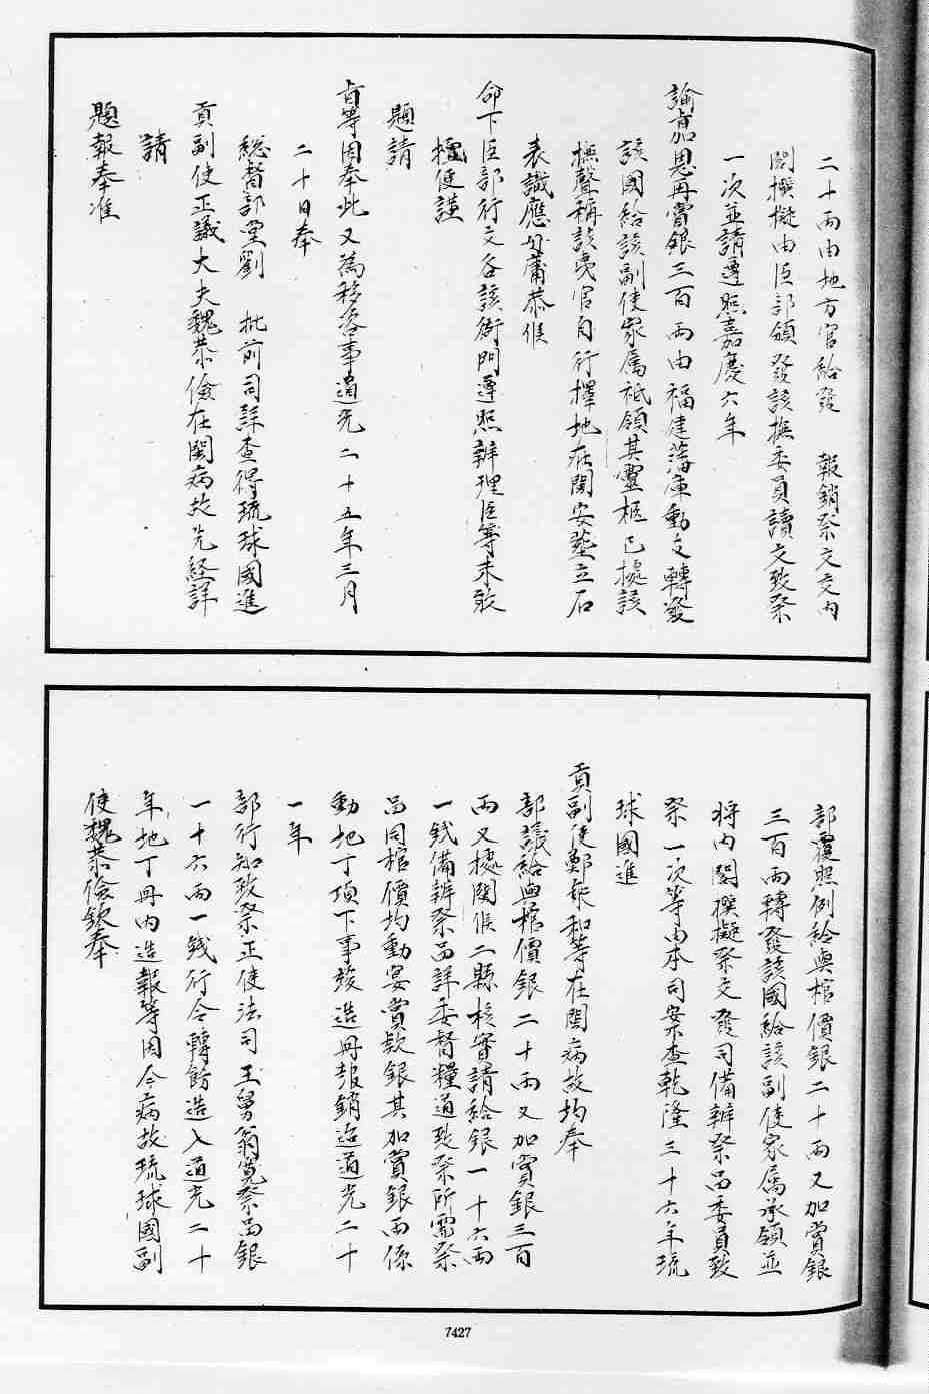 二十兩由地方官給發　報銷祭文交內
閣撰擬由臣部頒發該撫委員讀文致祭
一次並請遵照嘉慶六年
諭旨加恩再賞銀三百兩由福建藩庫動支轉發
該國給該副使家屬祗領其靈柩已據該
撫聲稱該夷官自行擇地在閩安葬立石
表識應毋庸恭候
命下臣部行文各該衙門遵照辦理臣等未敢
擅便謹
題請
旨等因奉此又為移咨事道光二十五年三月
二十日奉
總督部堂劉　批前司詳查得琉球國進
貢副使正議大夫魏恭儉在閩病故先經詳
請
題報奉准
部覆照例給與棺價銀二十兩又加賞銀
三百兩轉發該國給該副使家屬承領並
將內閣撰擬祭文發司備辦祭品委員致
祭一次等由本司案查乾隆三十六年琉
球國進
貢副使鄭和等在閩病故均奉
部議給與棺價銀二十兩又加賞銀三百
兩又據閩侯二縣核實請給銀一十六兩
一錢備辦祭品詳委督糧道致祭所需祭
品同棺價均動宴賞款銀其加賞銀兩係
動地丁項下事竣造冊報銷迨道光二十
一年
部行知致祭正使法司王舅翁寬祭品銀
一十六兩一錢行令轉飭造入道光二十
年地丁冊內造報等因今病故琉球國副
使魏恭儉欽奉
7427